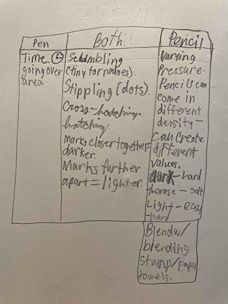 Pen
Time
going over
area
Both
Scumbling
(tiny tornados).
Stippling (dots).
Cross-hatching.
hatching.
marks closer together
darker.
Marks further
apart = lighter.
Pencil
Varying
Pressure.
Pencils can
come in
different
density-
can create
different
values.
dark-hard
Light-
Blendin/
blending
Stump/
towels.